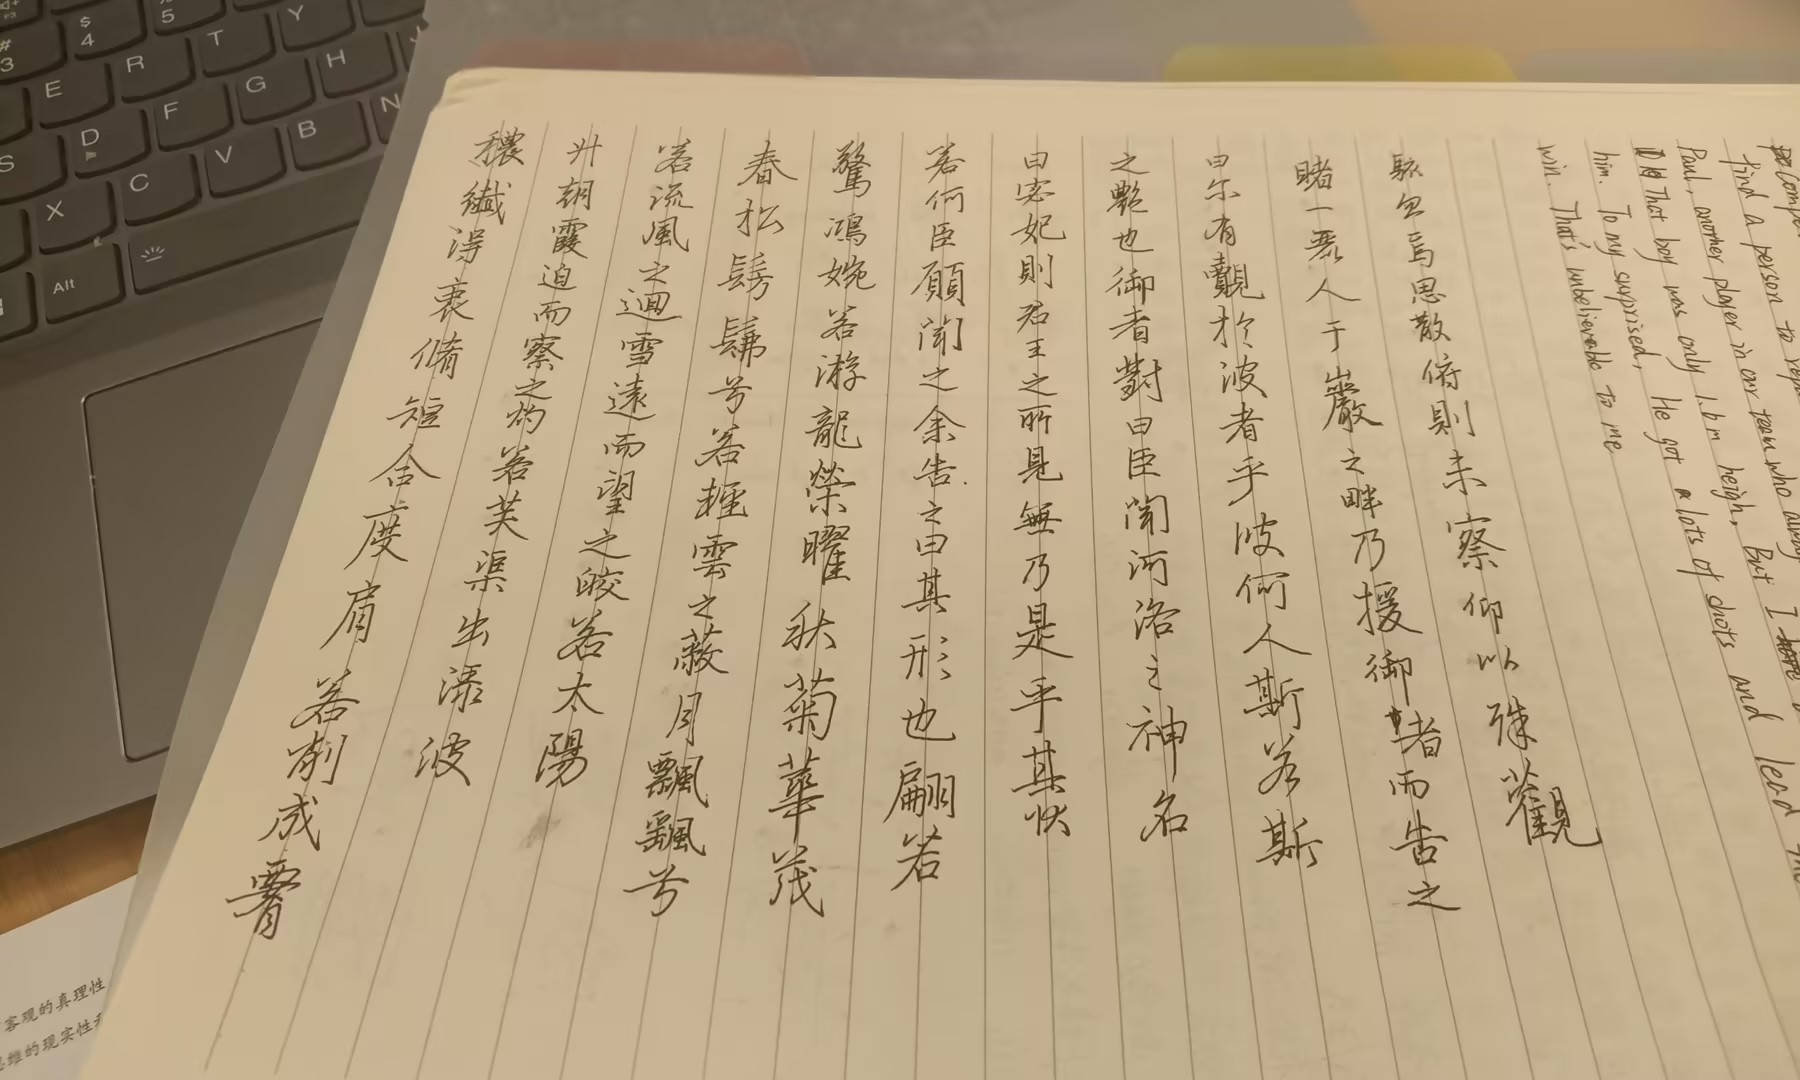 駭忽焉思散俯則未察仰以殊觀
睹一麗人于巖之畔乃援御者而告之
曰尔有觀於波者乎彼何人斯若斯
之艷也御者對曰臣聞河洛之神名
曰宓妃則君王之所見無乃是乎其狀
若何臣願聞之余告之曰其形也翩若
驚鴻婉若游龍榮曜秋菊華茂
春松髣髴兮若輕雲之蔽月飄飖兮
若流風之迴雪遠而望之皎若太陽
升朝霞迫而察之灼若芙渠出淥波
穠纖得衷脩短合度肩若削成
find a person to
Paul, another player in our team who
That boy was only 1.6m heigh, But I
him. To my surprised, He got a lots of shots and lead
win. That's unbelievable to me
$
4
5
#
3
E
R
T
Y
S
D
F
G
H
X
C
V
B
N
Alt
客观的真理性
的现实性